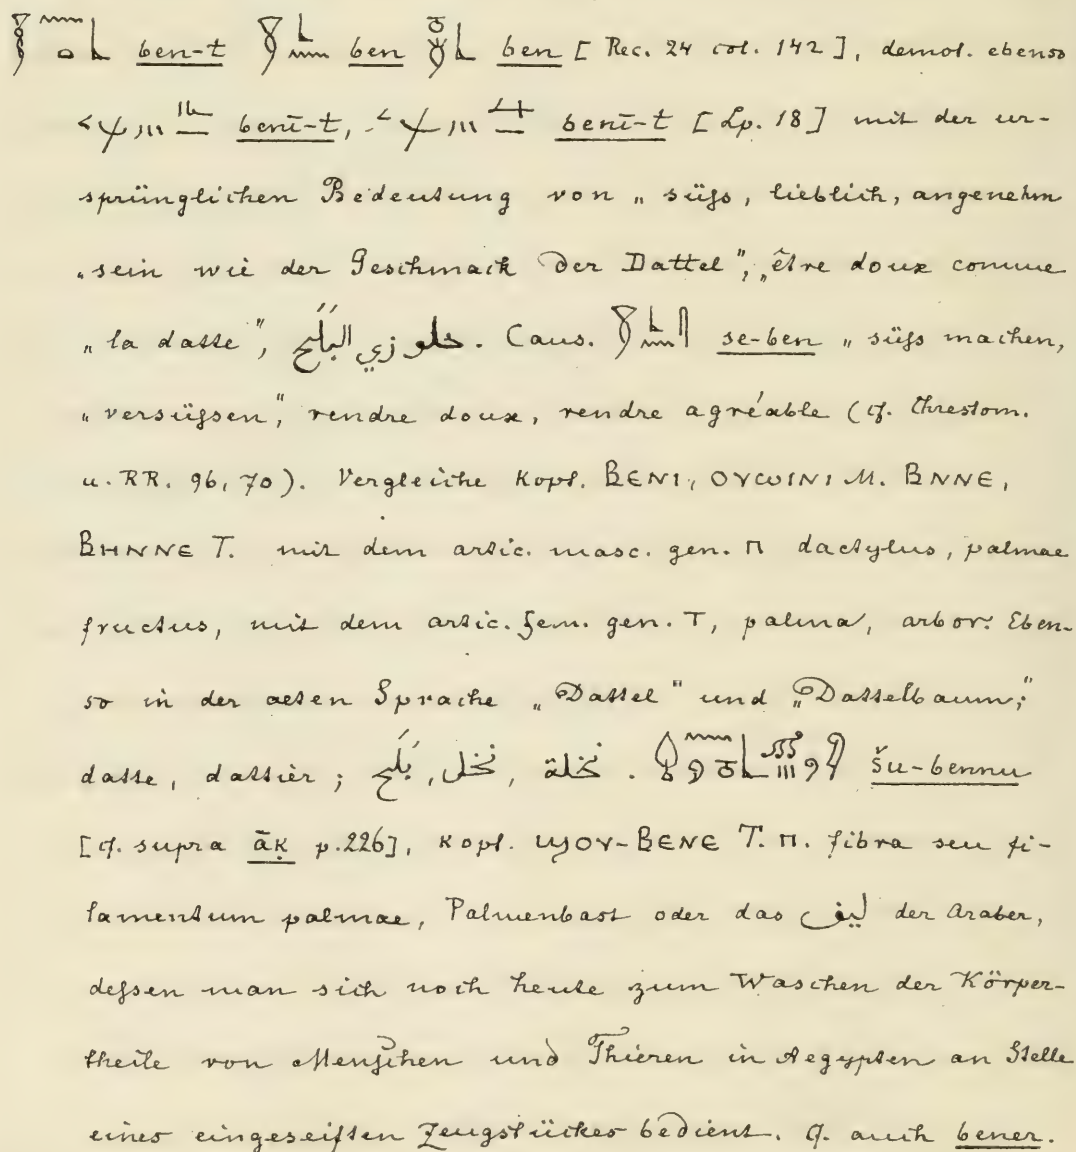 ben-t ben ben [Rec. 24 col. 142], demot. ebenso
benī-t, benī-t [Lp. 18] mit der ur-
sprünglichen Bedeutung von „süſs, lieblich, angenehm
„sein wie der Geschmack der Dattel", „être doux comme
„la datte", حلو زي البَلَح. Caus. se-ben „süſs machen,
„versüſsen", rendre doux, rendre agréable (cf. Chrestom.
u. RR. 96, 70). Vergleiche Kopt. ⲂⲈⲚⲒ, ⲞⲨⲰⲒⲚⲒ Ⲙ. ⲂⲚⲚⲈ,
ⲂⲎⲚⲚⲈ Ⲧ. mit dem artic. masc. gen. ⲡ dactylus, palmae
fructus, mit dem artic. fem. gen. ⲧ, palma, arbor. Eben-
so in der alten Sprache „Dattel" und „Dattelbaum",
datte, dattier; بَلَح, نخل, نخلة. šu-bennu
[cf. supra āḳ p. 226], Kopt. ϢⲞⲨ-ⲂⲈⲚⲈ Ⲧ. ⲡ. fibra seu fi-
lamentum palmae, Palmenbast oder das ليف der Araber,
deſsen man sich noch heute zum Waschen der Körper-
theile von Menschen und Thieren in Aegypten an Stelle
eines eingeseiften Zeugstückes bedient. Cf. auch bener.